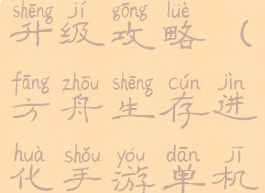 shēng jí gōng lüè
升级攻略（
fāng zhōu shēng cún jìn
方舟生存进
huà shǒu yóu dān jī
化手游单机